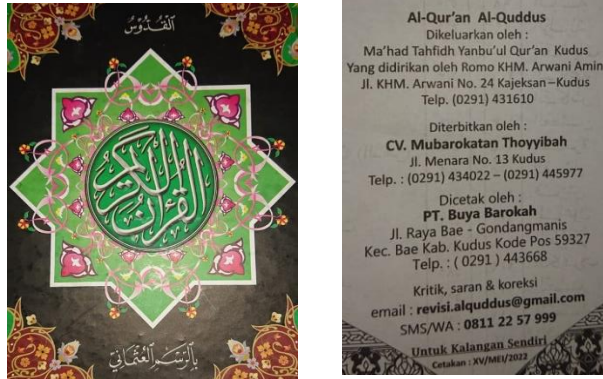 القدوس
القرآن الكريم
بالرسم العثماني
Al-Qur'an Al-Quddus
Dikeluarkan oleh :
Ma'had Tahfidh Yanbu'ul Qur'an Kudus
Yang didirikan oleh Romo KHM. Arwani Amin
Jl. KHM. Arwani No. 24 Kajeksan – Kudus
Telp. (0291) 431610
Diterbitkan oleh :
CV. Mubarokatan Thoyyibah
Jl. Menara No. 13 Kudus
Telp. : (0291) 434022 – (0291) 445977
Dicetak oleh :
PT. Buya Barokah
Jl. Raya Bae - Gondangmanis
Kec. Bae Kab. Kudus Kode Pos 59327
Telp. : ( 0291 ) 443668
Kritik, saran & koreksi
email : revisi.alquddus@gmail.com
SMS/WA : 0811 22 57 999
Untuk Kalangan Sendiri
Cetakan : XV/MEI/2022